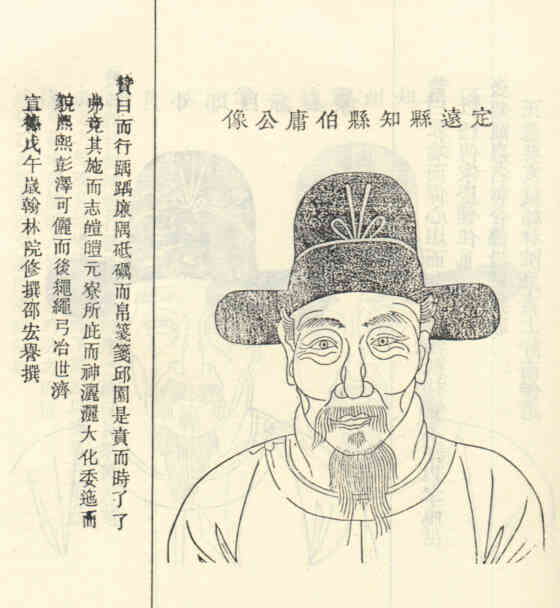 定遠縣知縣伯庸公像
贊曰而行踽踽廉隅砥礪而帛箋箋邱園是賁而時了了
弗竟其施而志皚皚元寮所庇而神灑灑大化委迤而
貌熙熙彭澤可儷而後繩繩弓冶世濟
宣德戊午歲翰林院修撰邵宏譽撰